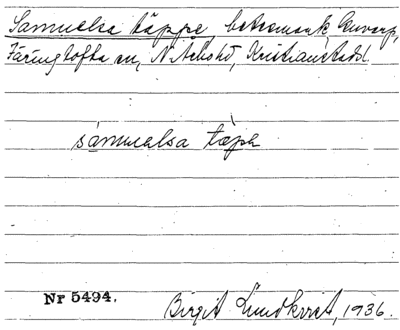 Samuelsa täppe, betesmark, Genarp,
Färingtofta sn, N. Åsbo hd, Kristianstads l.
sámuelsa tæpe
Nr 5494.
Birgit Lundkvist, 1936.